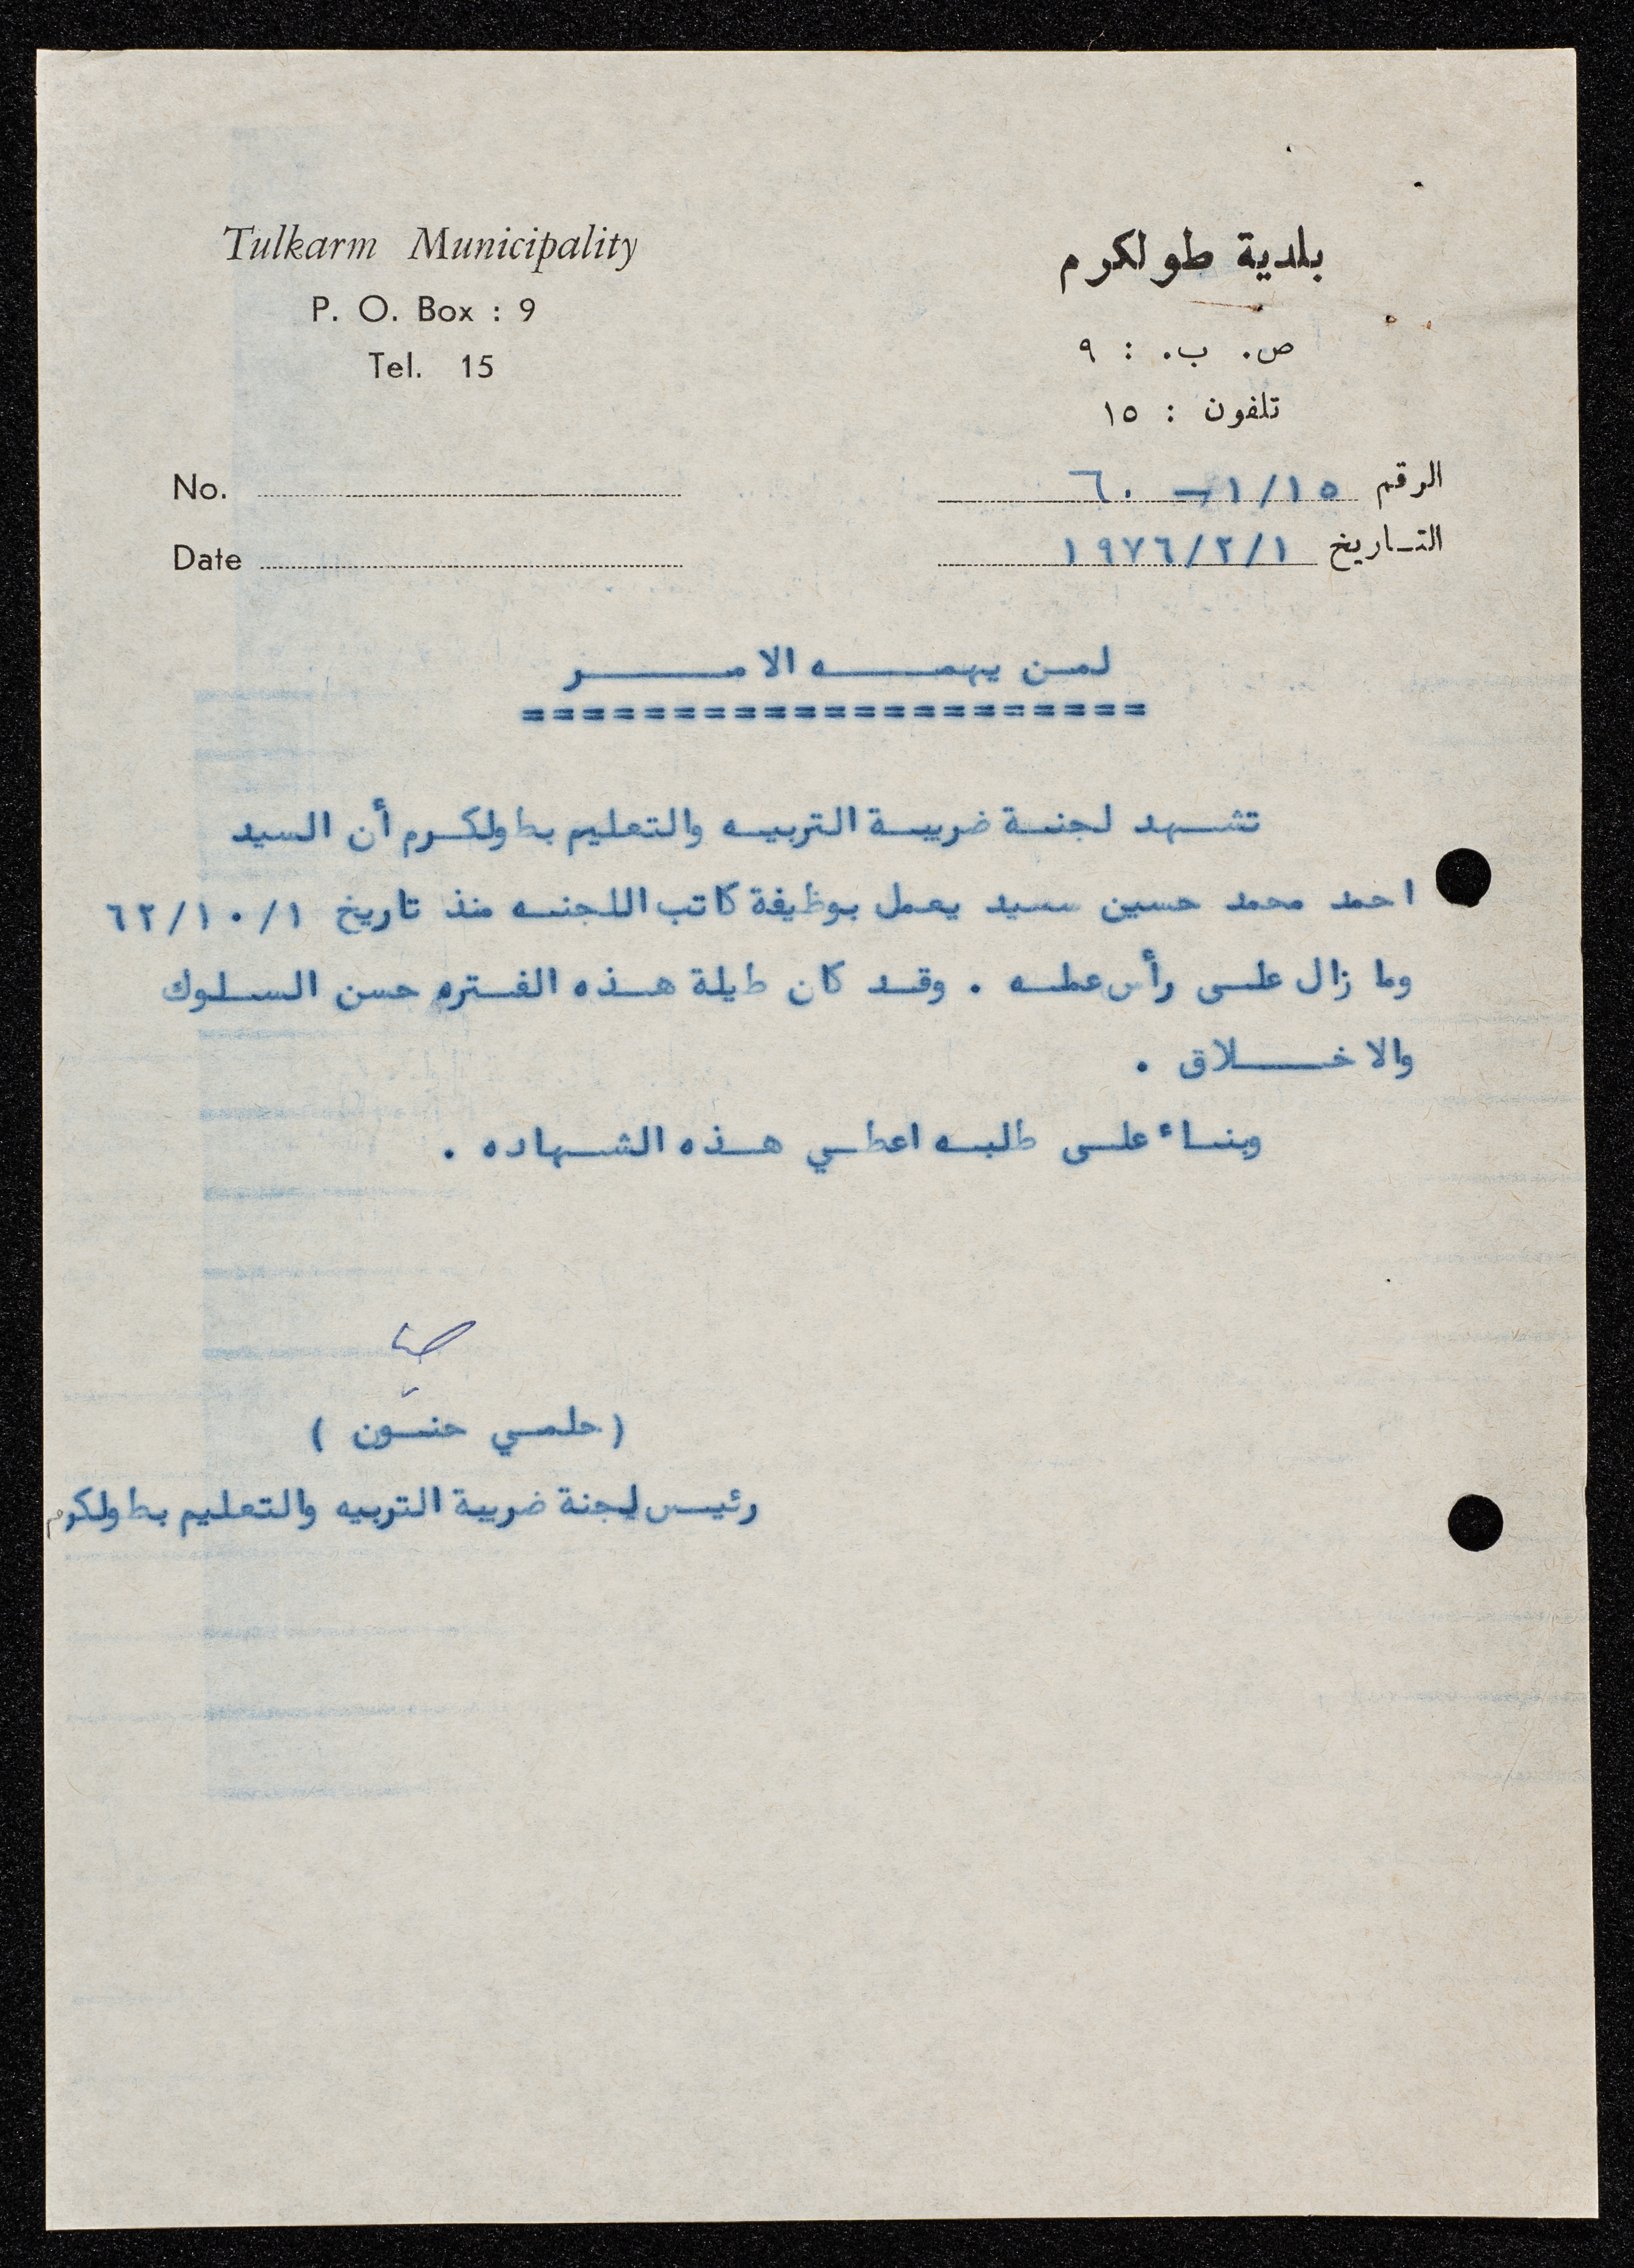 Tulkarm Municipality
P. O. Box : 9
Tel. 15
No.
Date
بلدية طولكرم
ص. ب. : ٩
تلفون : ١٥
الرقم ١/١٥ — ٦٠
التـاريخ ١٩٧٦/٢/١
لمـن يهمـــه الامـــر
=====================
تشـهد لجنـة ضريبـة التربيـه والتعليم بطولكـرم أن السيد
احمد محمد حسين سيد يعمل بوظيفة كاتب اللجنـه منذ تاريخ ٦٢/١٠/١
وما زال علـى رأس عملـه . وقـد كان طيلة هـذه الفـتره حسن السـلوك
والاخـــلاق .
وبنـاء علـى طلبـه اعطـي هـذه الشـهاده .
( حلمـي حنـون )
رئيـس لجنة ضريبة التربيه والتعليم بطولكرم